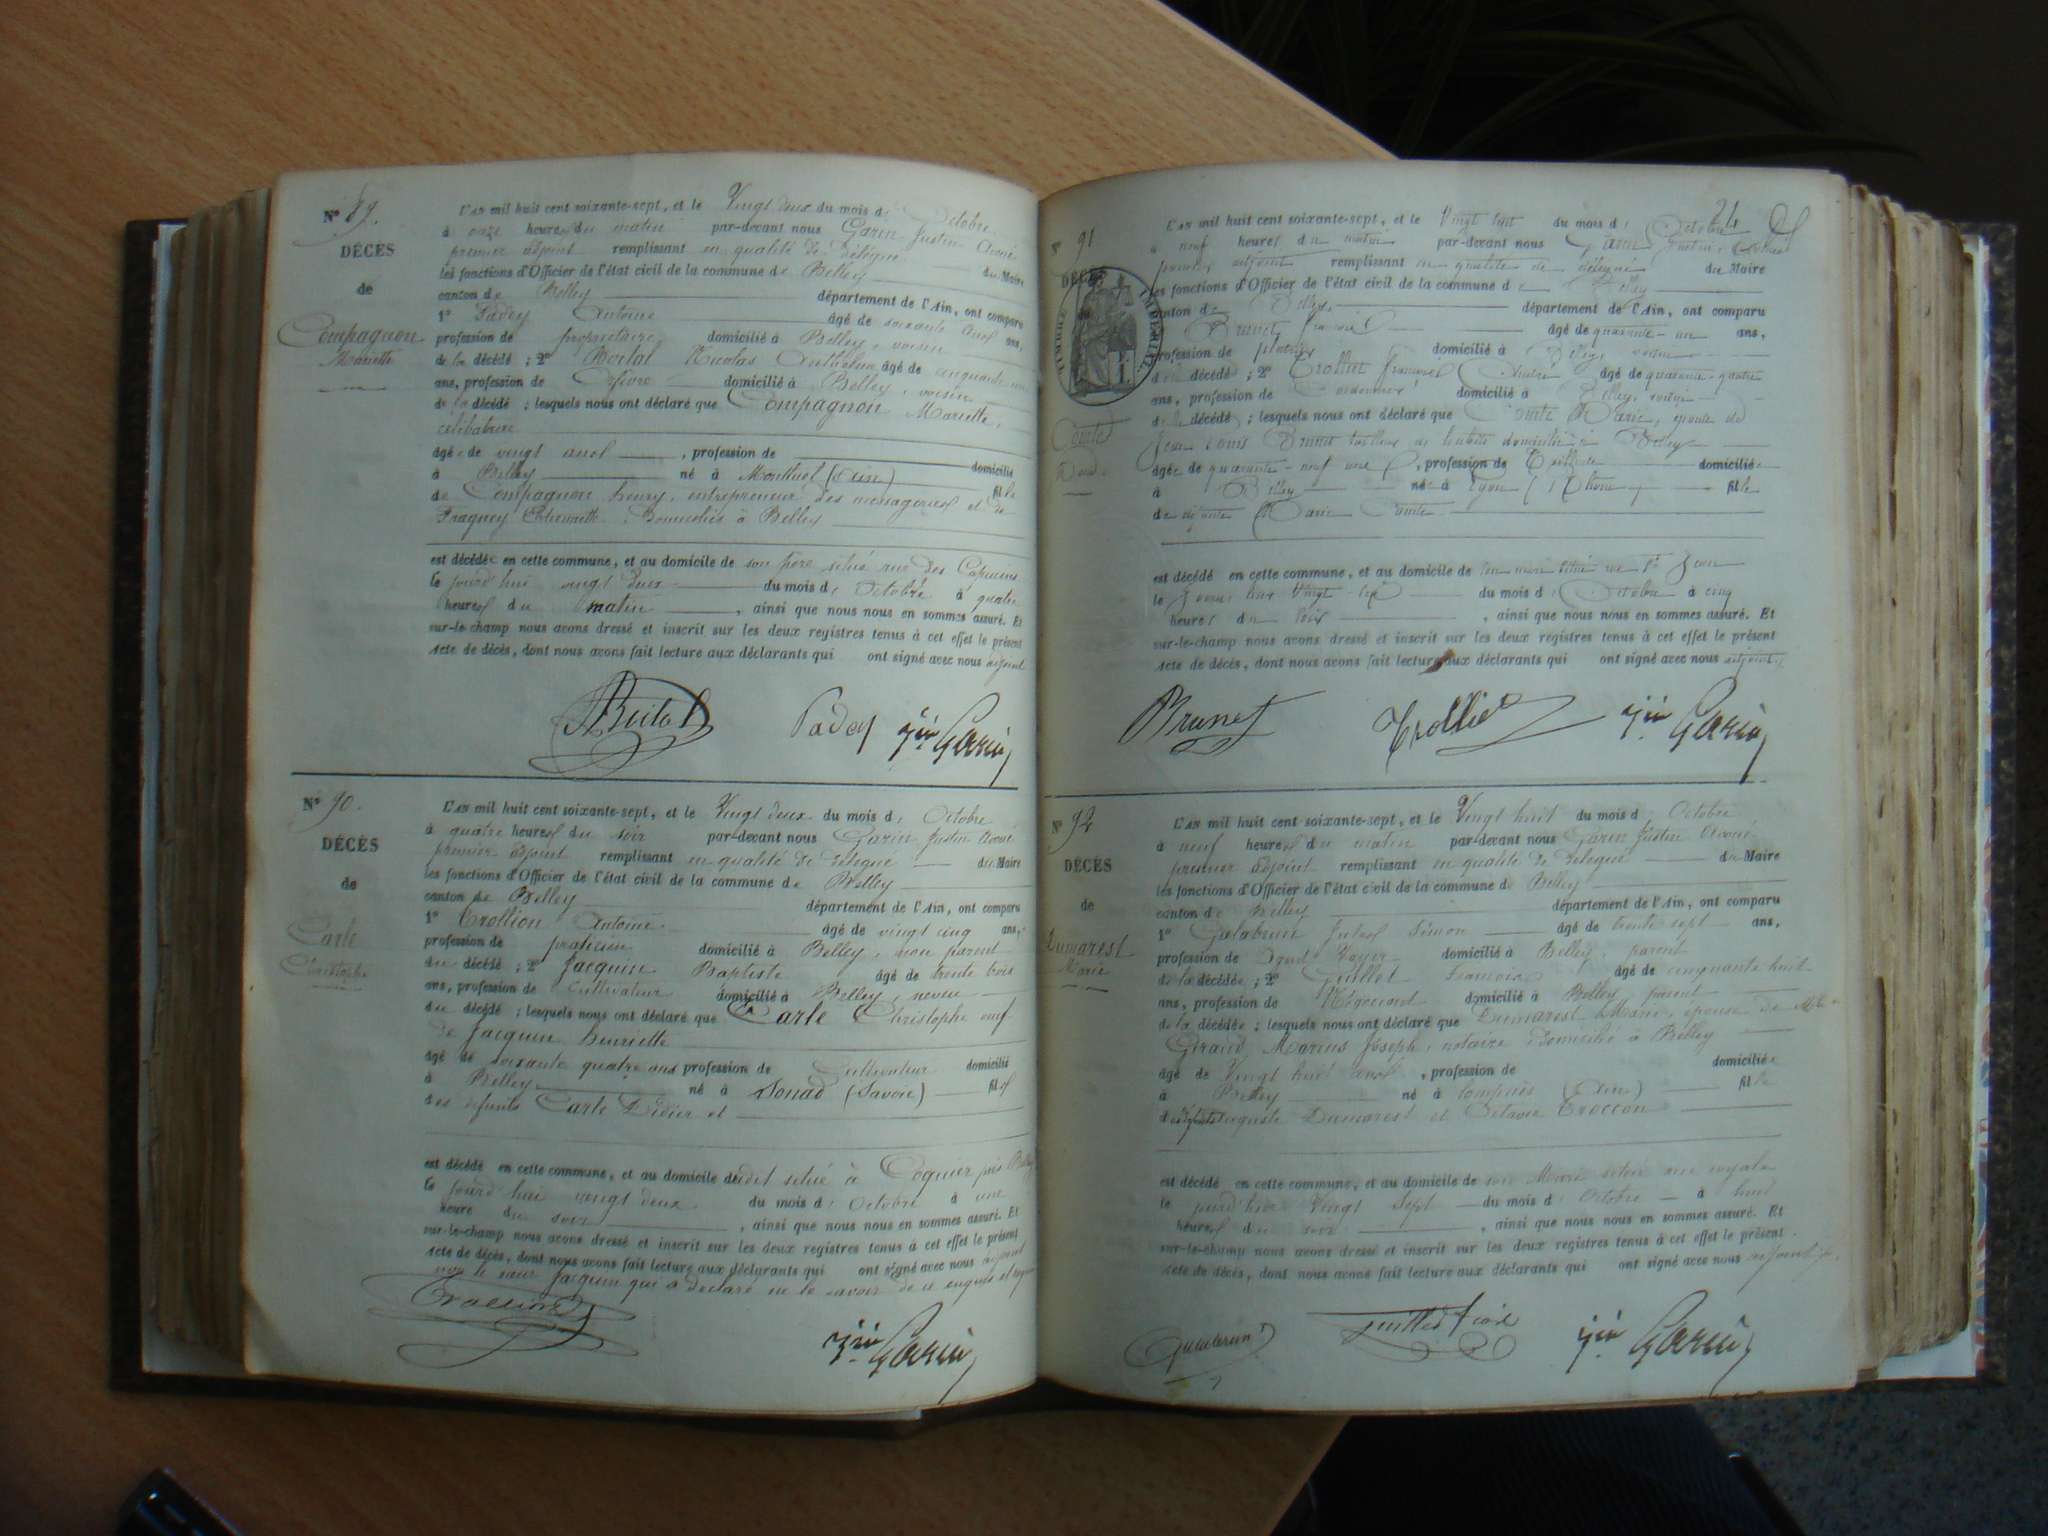 N° 89.
DÉCÈS
de
Compagnon
Mariette
L'AN mil huit cent soixante-sept, et le Vingt deux du mois d' Octobre
à onze heures du matin par-devant nous Garin Justin Avoué
premier adjoint remplissant en qualité de délégué du Maire
les fonctions d'Officier de l'état civil de la commune de Belley
canton de Belley département de l'Ain, ont comparu
1° Padey Antoine âgé de soixante ans ans,
profession de propriétaire domicilié à Belley, voisin
de la décédé ; 2° Nicolas Anthelme âgé de cinquante
ans, profession de domicilié à Belley, voisin
de la décédé ; lesquels nous ont déclaré que Compagnon Mariette,
célibataire
âgée de vingt ans , profession de domicilié
à Belley né à Montluel (Ain) fille
de Compagnon henry, entrepreneur des messageries et de
domiciliés à Belley
est décédée en cette commune, et au domicile de son père situé rue des Capucins
le jourd'hui vingt deux du mois d' Octobre à quatre
heures du matin , ainsi que nous nous en sommes assuré. Et
sur-le-champ nous avons dressé et inscrit sur les deux registres tenus à cet effet le présent
acte de décès, dont nous avons fait lecture aux déclarants qui ont signé avec nous adjoint
Padey Jin Garin
N° 90.
DÉCÈS
de
Carle
Christophe
L'AN mil huit cent soixante-sept, et le Vingt deux du mois d' Octobre
à quatre heures du soir par-devant nous Garin Justin Avoué
premier adjoint remplissant en qualité de délégué du Maire
les fonctions d'Officier de l'état civil de la commune de Belley
canton de Belley département de l'Ain, ont comparu
1° Trollion Antoine âgé de vingt cinq ans,
profession de praticien domicilié à Belley, non parent
du décédé ; 2° Jacquin Baptiste âgé de trente trois
ans, profession de Cultivateur domicilié à Belley, neveu
du décédé ; lesquels nous ont déclaré que Carle Christophe veuf
de Jacquin henriette
âgé de soixante quatre ans profession de Cultivateur domicilié
à Belley né à Sonad (Savoie) fils
des défunts Carle Didier et
est décédé en cette commune, et au domicile dudit situé à Coquier près Belley
le jourd'hui vingt deux du mois d' Octobre à une
heure du soir , ainsi que nous nous en sommes assuré. Et
sur-le-champ nous avons dressé et inscrit sur les deux registres tenus à cet effet le présent
acte de décès, dont nous avons fait lecture aux déclarants qui ont signé avec nous adjoint
non le sieur Jacquin qui a déclaré ne le savoir de ce enquis et requis
Jin Garin
24
N° 91
DÉCÈS
TIMBRE IMPÉRIAL
Comte
L'AN mil huit cent soixante-sept, et le Vingt sept du mois d' Octobre
à neuf heures du matin par-devant nous Garin Justin, Avoué
premier adjoint remplissant en qualité de délégué du Maire
les fonctions d'Officier de l'état civil de la commune de Belley
canton de Belley département de l'Ain, ont comparu
Brunet François âgé de quarante-un ans,
profession de plâtrier domicilié à Belley, voisin
de la décédé ; 2° Trollier François âgé de quarante-quatre
ans, profession de Cordonnier domicilié à Belley, voisin
de la décédé ; lesquels nous ont déclaré que Comte Marie, épouse de
Jean Louis tailleur de domicilié à Belley
âgée de quarante-neuf ans , profession de domiciliée
à Belley née à Lyon (Rhône) fille
de Marie Comte
est décédé en cette commune, et au domicile de son mari situé rue St Jean
le jour hier vingt-six du mois d' Octobre à cinq
heures du soir , ainsi que nous nous en sommes assuré. Et
sur-le-champ nous avons dressé et inscrit sur les deux registres tenus à cet effet le présent
acte de décès, dont nous avons fait lecture aux déclarants qui ont signé avec nous adjoint.
Brunet Trollier Jin Garin
N° 92
DÉCÈS
de
Dumarest
Marie
L'AN mil huit cent soixante-sept, et le Vingt huit du mois d' Octobre
à neuf heures du matin par-devant nous Garin Justin Avoué
premier adjoint remplissant en qualité de délégué du Maire
les fonctions d'Officier de l'état civil de la commune de Belley
canton de Belley département de l'Ain, ont comparu
1° Galabrun Jules Simon âgé de trente sept ans,
profession de Agent Voyer domicilié à Belley, parent
de la décédée ; 2° Guillet François âgé de cinquante huit
ans, profession de Négociant domicilié à Belley parent
de la décédée ; lesquels nous ont déclaré que Dumarest Marie, épouse de
Giraud Marius Joseph, notaire domicilié à Belley
âgé de Vingt huit ans , profession de domiciliée
à Belley né à Lompnès (Ain) fille
Auguste Dumarest et Octavie Troccon
est décédé en cette commune, et au domicile de son Mari situé rue royale
le jourd'hier Vingt Sept du mois d' Octobre à huit
heures du soir , ainsi que nous nous en sommes assuré. Et
sur-le-champ nous avons dressé et inscrit sur les deux registres tenus à cet effet le présent
acte de décès, dont nous avons fait lecture aux déclarants qui ont signé avec nous adjoint
Galabrun Jin Garin